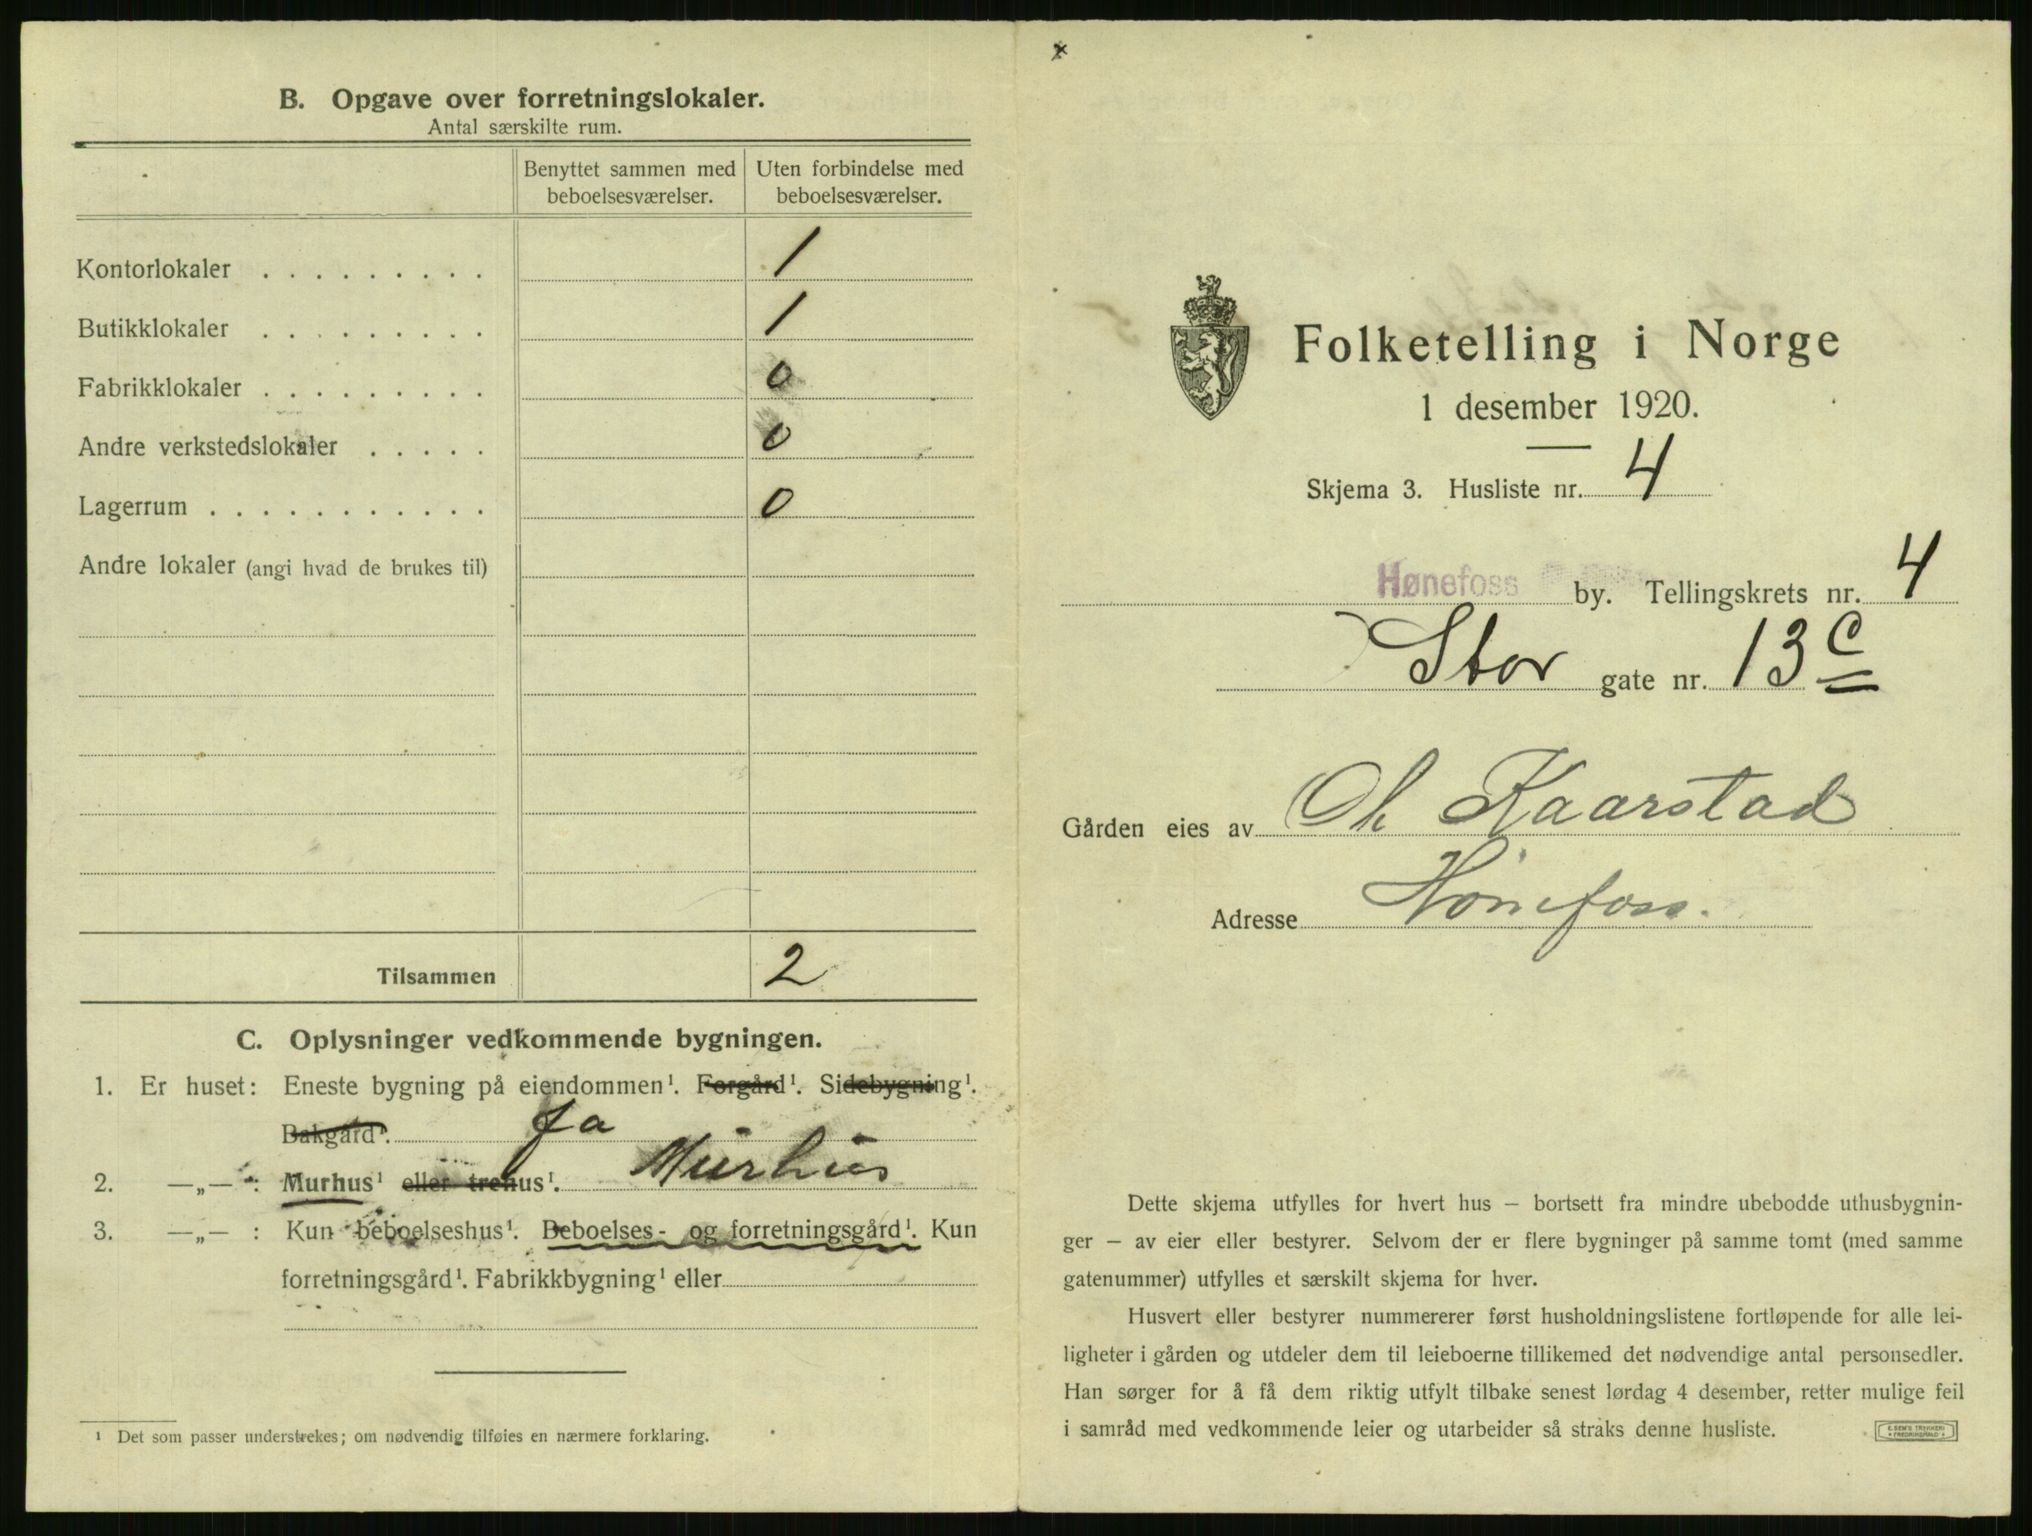 B. Opgave over forretningslokaler.
Antal særskilte rum.
Benyttet sammen med beboelsesværelser.
Uten forbindelse med beboelsesværelser.
Kontorlokaler . . . . . . . . . 1
Butikklokaler . . . . . . . . . 1
Fabrikklokaler . . . . . . . . . 0
Andre verkstedslokaler . . . . . 0
Lagerrum . . . . . . . . . . . 0
Andre lokaler (angi hvad de brukes til)
Tilsammen 2
C. Oplysninger vedkommende bygningen.
1. Er huset: Eneste bygning på eiendommen¹. Forgård¹. Sidebygning¹.
Bakgård¹. Ja
2. —„— : Murhus¹ eller trehus¹. Murhus
3. —„— : Kun beboelseshus¹. Beboelses- og forretningsgård¹. Kun
forretningsgård¹. Fabrikkbygning¹ eller
¹ Det som passer understrekes; om nødvendig tilføies en nærmere forklaring.
Folketelling i Norge
1 desember 1920.
Skjema 3. Husliste nr. 4
Hønefoss by. Tellingskrets nr. 4
Stor gate nr. 13 C
Gården eies av Kaarstad
Adresse Hønefoss.
Dette skjema utfylles for hvert hus – bortsett fra mindre ubebodde uthusbygnin-
ger – av eier eller bestyrer. Selvom der er flere bygninger på samme tomt (med samme
gatenummer) utfylles et særskilt skjema for hver.
Husvert eller bestyrer nummererer først husholdningslistene fortløpende for alle lei-
ligheter i gården og utdeler dem til leieboerne tillikemed det nødvendige antal personsedler.
Han sørger for å få dem riktig utfylt tilbake senest lørdag 4 desember, retter mulige feil
i samråd med vedkommende leier og utarbeider så straks denne husliste.